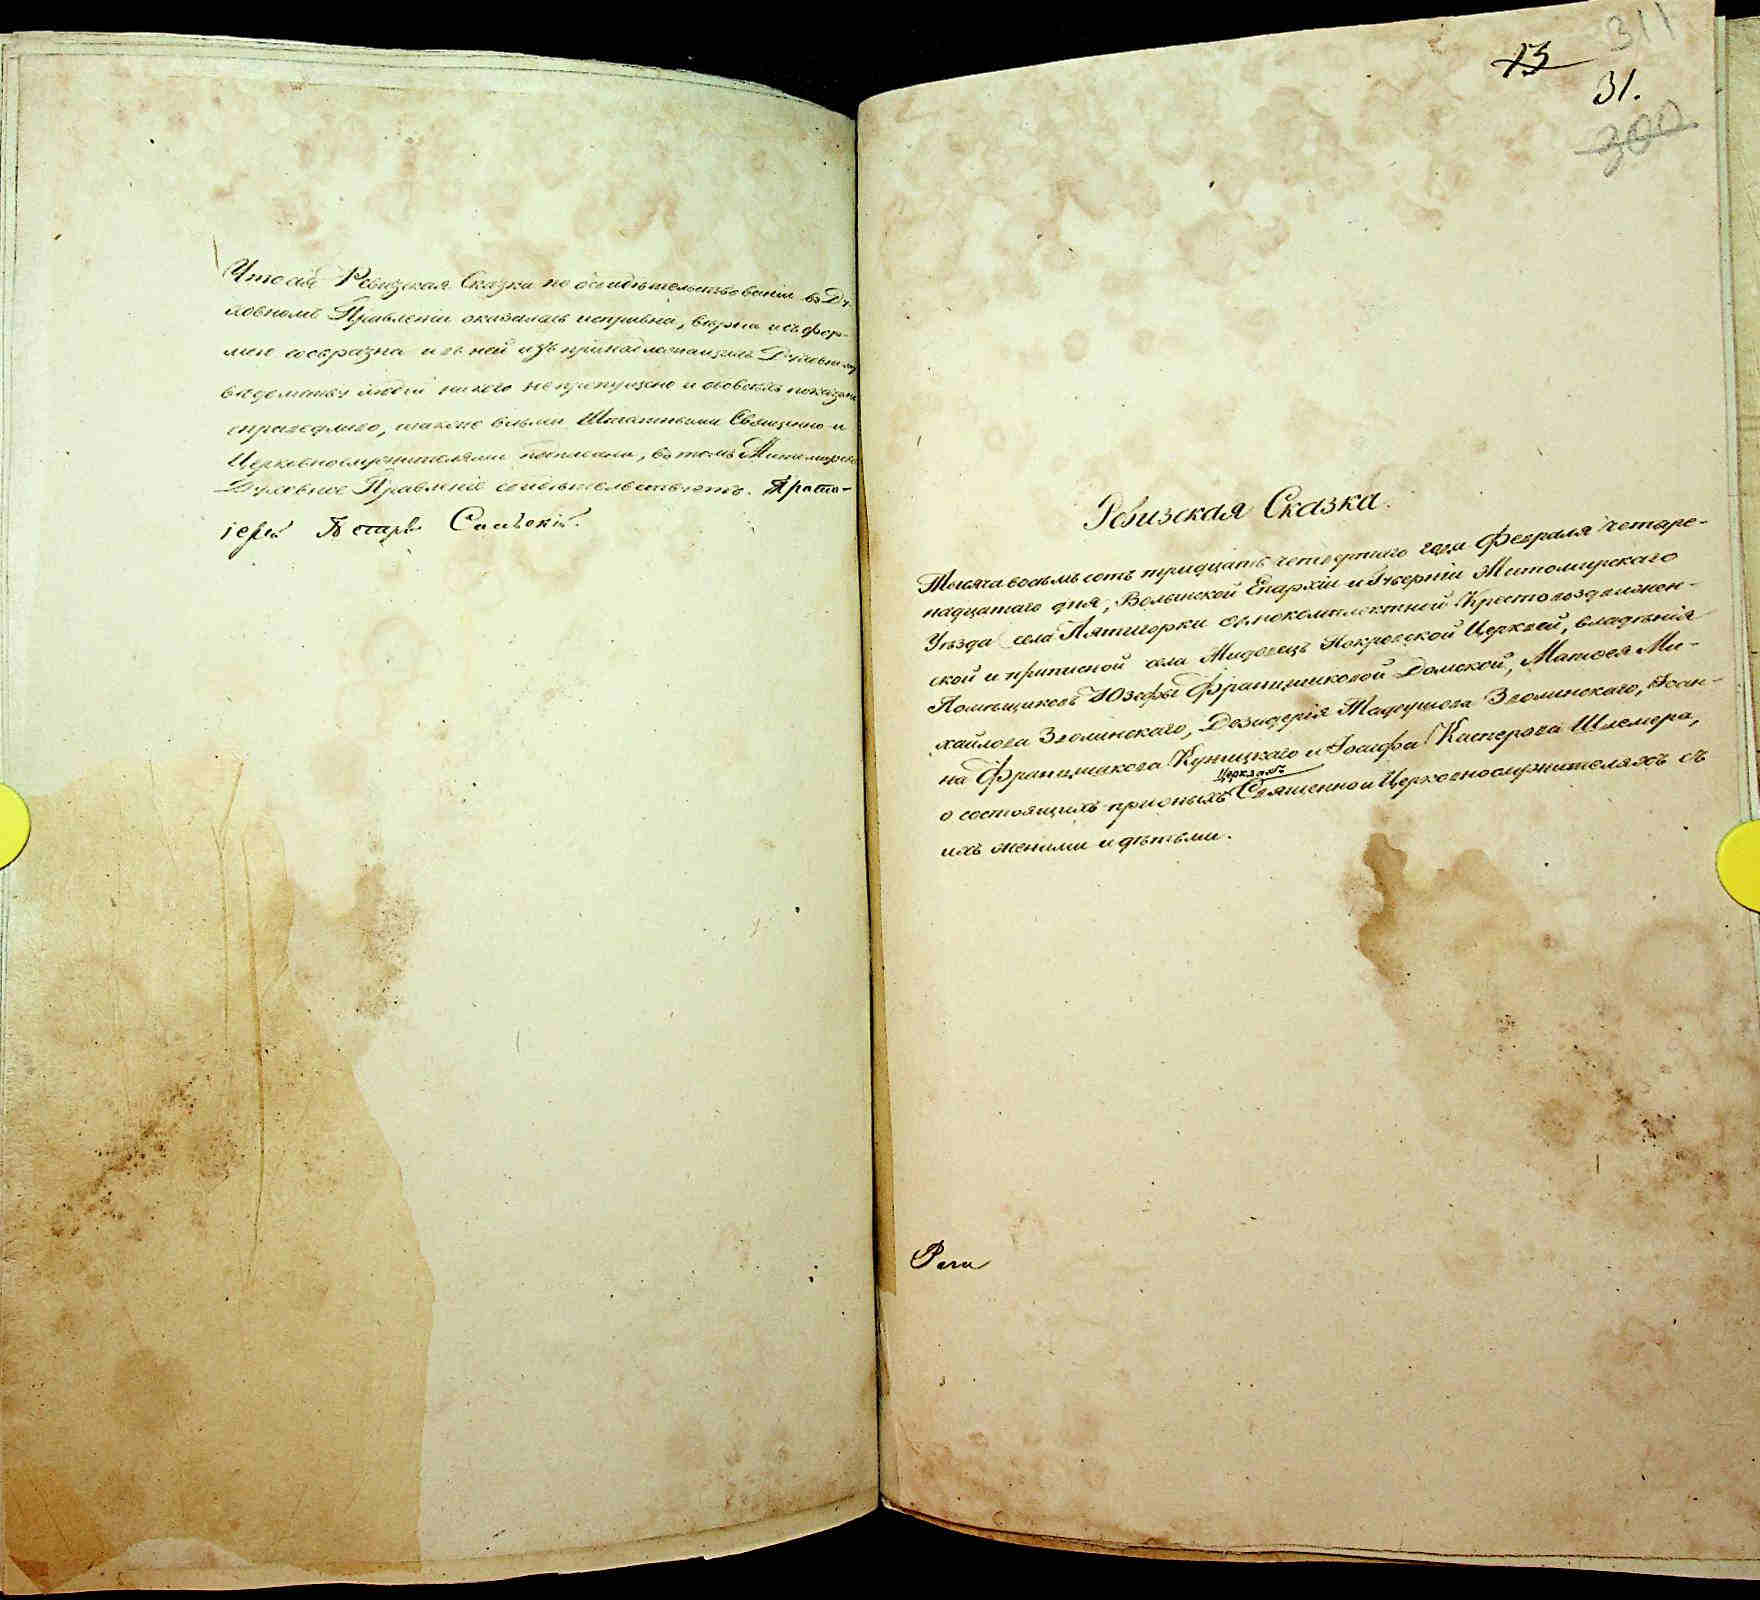 Что сія Ревизская Сказка по освидѣтельствованіи въ Ду-
ховномъ Правленіи оказалась исправна, вѣрна и съ фор-
мою сообразна и въ ней изъ принадлежащихъ Духовному
вѣдомству людей никого не пропущено и обо всѣхъ показано
справедливо, также всѣми Штатными Священно и
Церковнослужителями подписана, въ томъ Житомирское
Духовное Правленіе свидѣтельствуетъ. Прото-
іерей Петръ
13
311
31.
300
Ревизская Сказка.
Тысяча восьмъ сотъ тридцать четвертаго года Февраля четыре-
надцатаго дня, Волынской Епархіи и Губерніи Житомирскаго
Уѣзда села Пятигорки однокомплектной Крестовоздвижен-
ской и приписной села Жидовецъ Покровской Церквей, владѣнія
Помѣщиковъ Юзефы Францишковой Домской, Матвея Ми-
хайлова Зволинскаго, Дезидерія Тадеушева Зволинскаго, Іоан-
на Францишкова Купицкаго и Іосифа Касперова Шлемера,
о состоящихъ при оныхъ Церквахъ Священно и Церковнослужителяхъ съ
ихъ женами и дѣтьми.